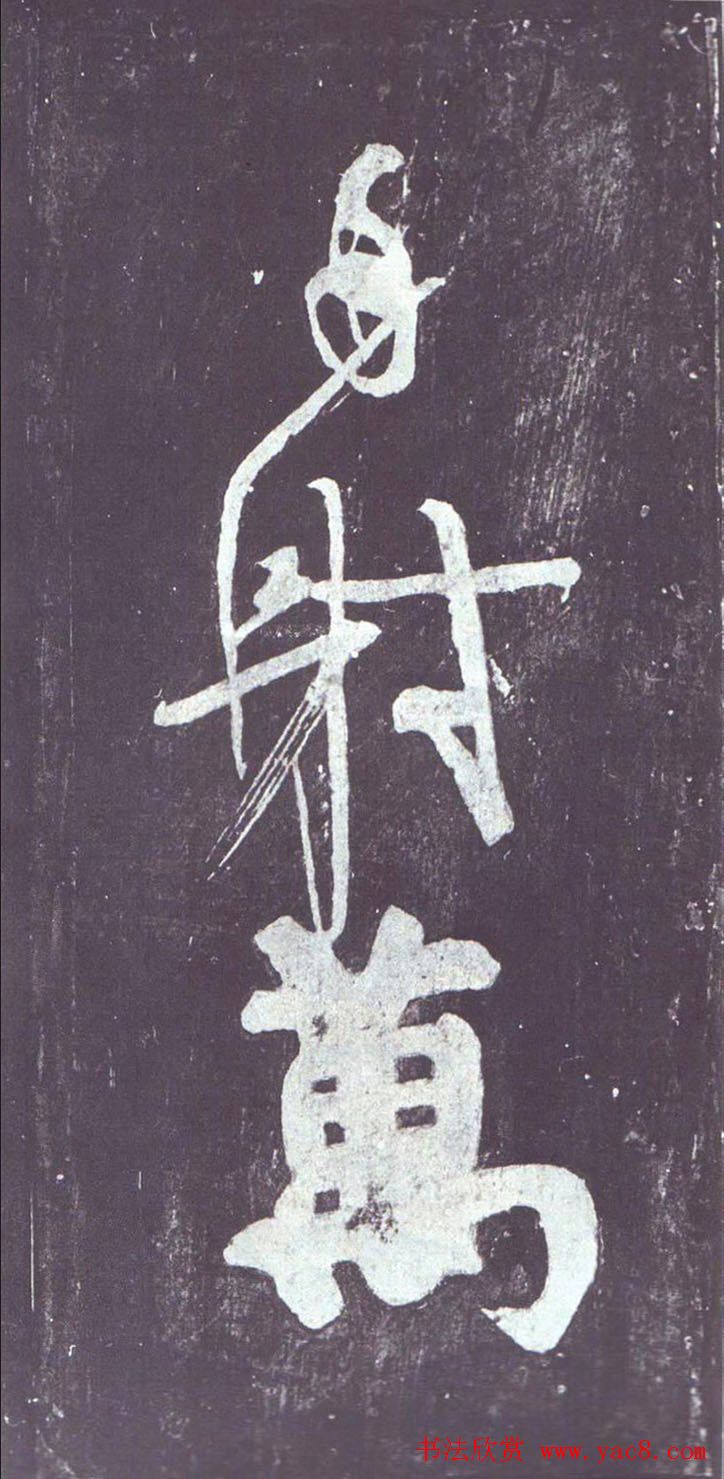 射萬
书法欣赏 www.yac8.com